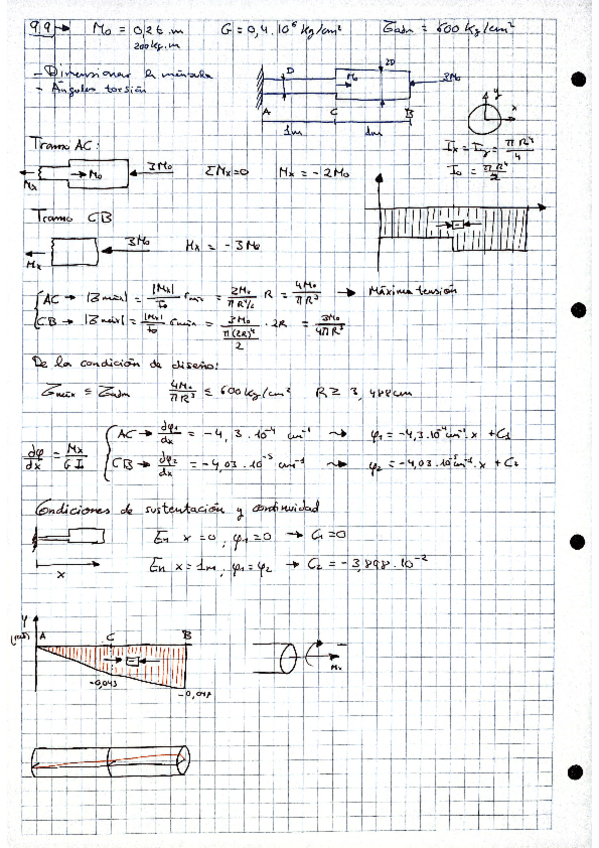 9.9 → M₀ = 0,2 t.m G = 0,4.10⁶ kg/cm² Zadm = 600 kg/cm²
200 kg.m
- Dimensionar la ménsula
- Ángulos torsión
D M₀ 2D 3M₀
A C B
1m 1m
y x
Ix = Iy = πR⁴/4
I₀ = πR⁴/2
Tramo AC:
Mx → M₀ 3M₀ ΣMx=0 Mx = -2M₀
Tramo CB
Mx 3M₀ Mx = -3M₀
AC → |Zmáx| = |Mx|/I₀ rmáx = 2M₀/(πR⁴/2) R = 4M₀/πR³ → Máxima tensión
CB → |Zmáx| = |Mx|/I₀ rmáx = 3M₀/(π(2R)⁴/2) · 2R = 3M₀/4πR³
De la condición de diseño:
Zmáx ≤ Zadm 4M₀/πR³ ≤ 600 kg/cm² R ≥ 3,488cm
dφ/dx = Mx/G I₀
AC → dφ₁/dx = -4,3.10⁻⁴ cm⁻¹ ⇝ φ₁ = -4,3.10⁻⁴cm⁻¹.x + C₁
CB → dφ₂/dx = -4,03.10⁻⁵ cm⁻¹ ⇝ φ₂ = -4,03.10⁻⁵cm⁻¹.x + C₂
Condiciones de sustentación y continuidad
En x=0, φ₁=0 → C₁=0
x En x=1m, φ₁=φ₂ → C₂ = -3,898.10⁻²
φ (rad) A C B
Mx
-0,043 -0,047